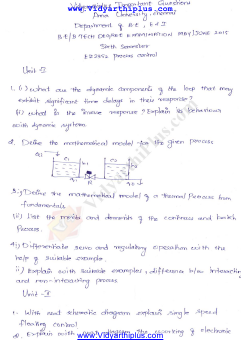 www.Vidyarthiplus.com
Important Questions
Anna University, Chennai
Department of E&I
B.E/B.TECH DEGREE EXAMINATION MAY/JUNE 2015
Sixth Semester
Process control
Unit-I
1. (i) What are the dynamic components of the loop that may
exhibit significant time delays in their response?
(ii) What is the inverse response? Explain its behaviour
with dynamic system.
2. Define the mathematical model for the given process
3. i) Define the mathematical model of a thermal process from
fundamentals
(ii) List the merits and demerits of the continuous and batch
Process.
4) i) Differentiate servo and regulatory operation with the
help of suitable example.
ii) Explain with suitable examples, difference b/w interacting
and non-interacting process
Unit-II
1. With neat schematic diagram explain single speed
floating control
2. Explain with neat diagram the working of electronic
www.Vidyarthiplus.com